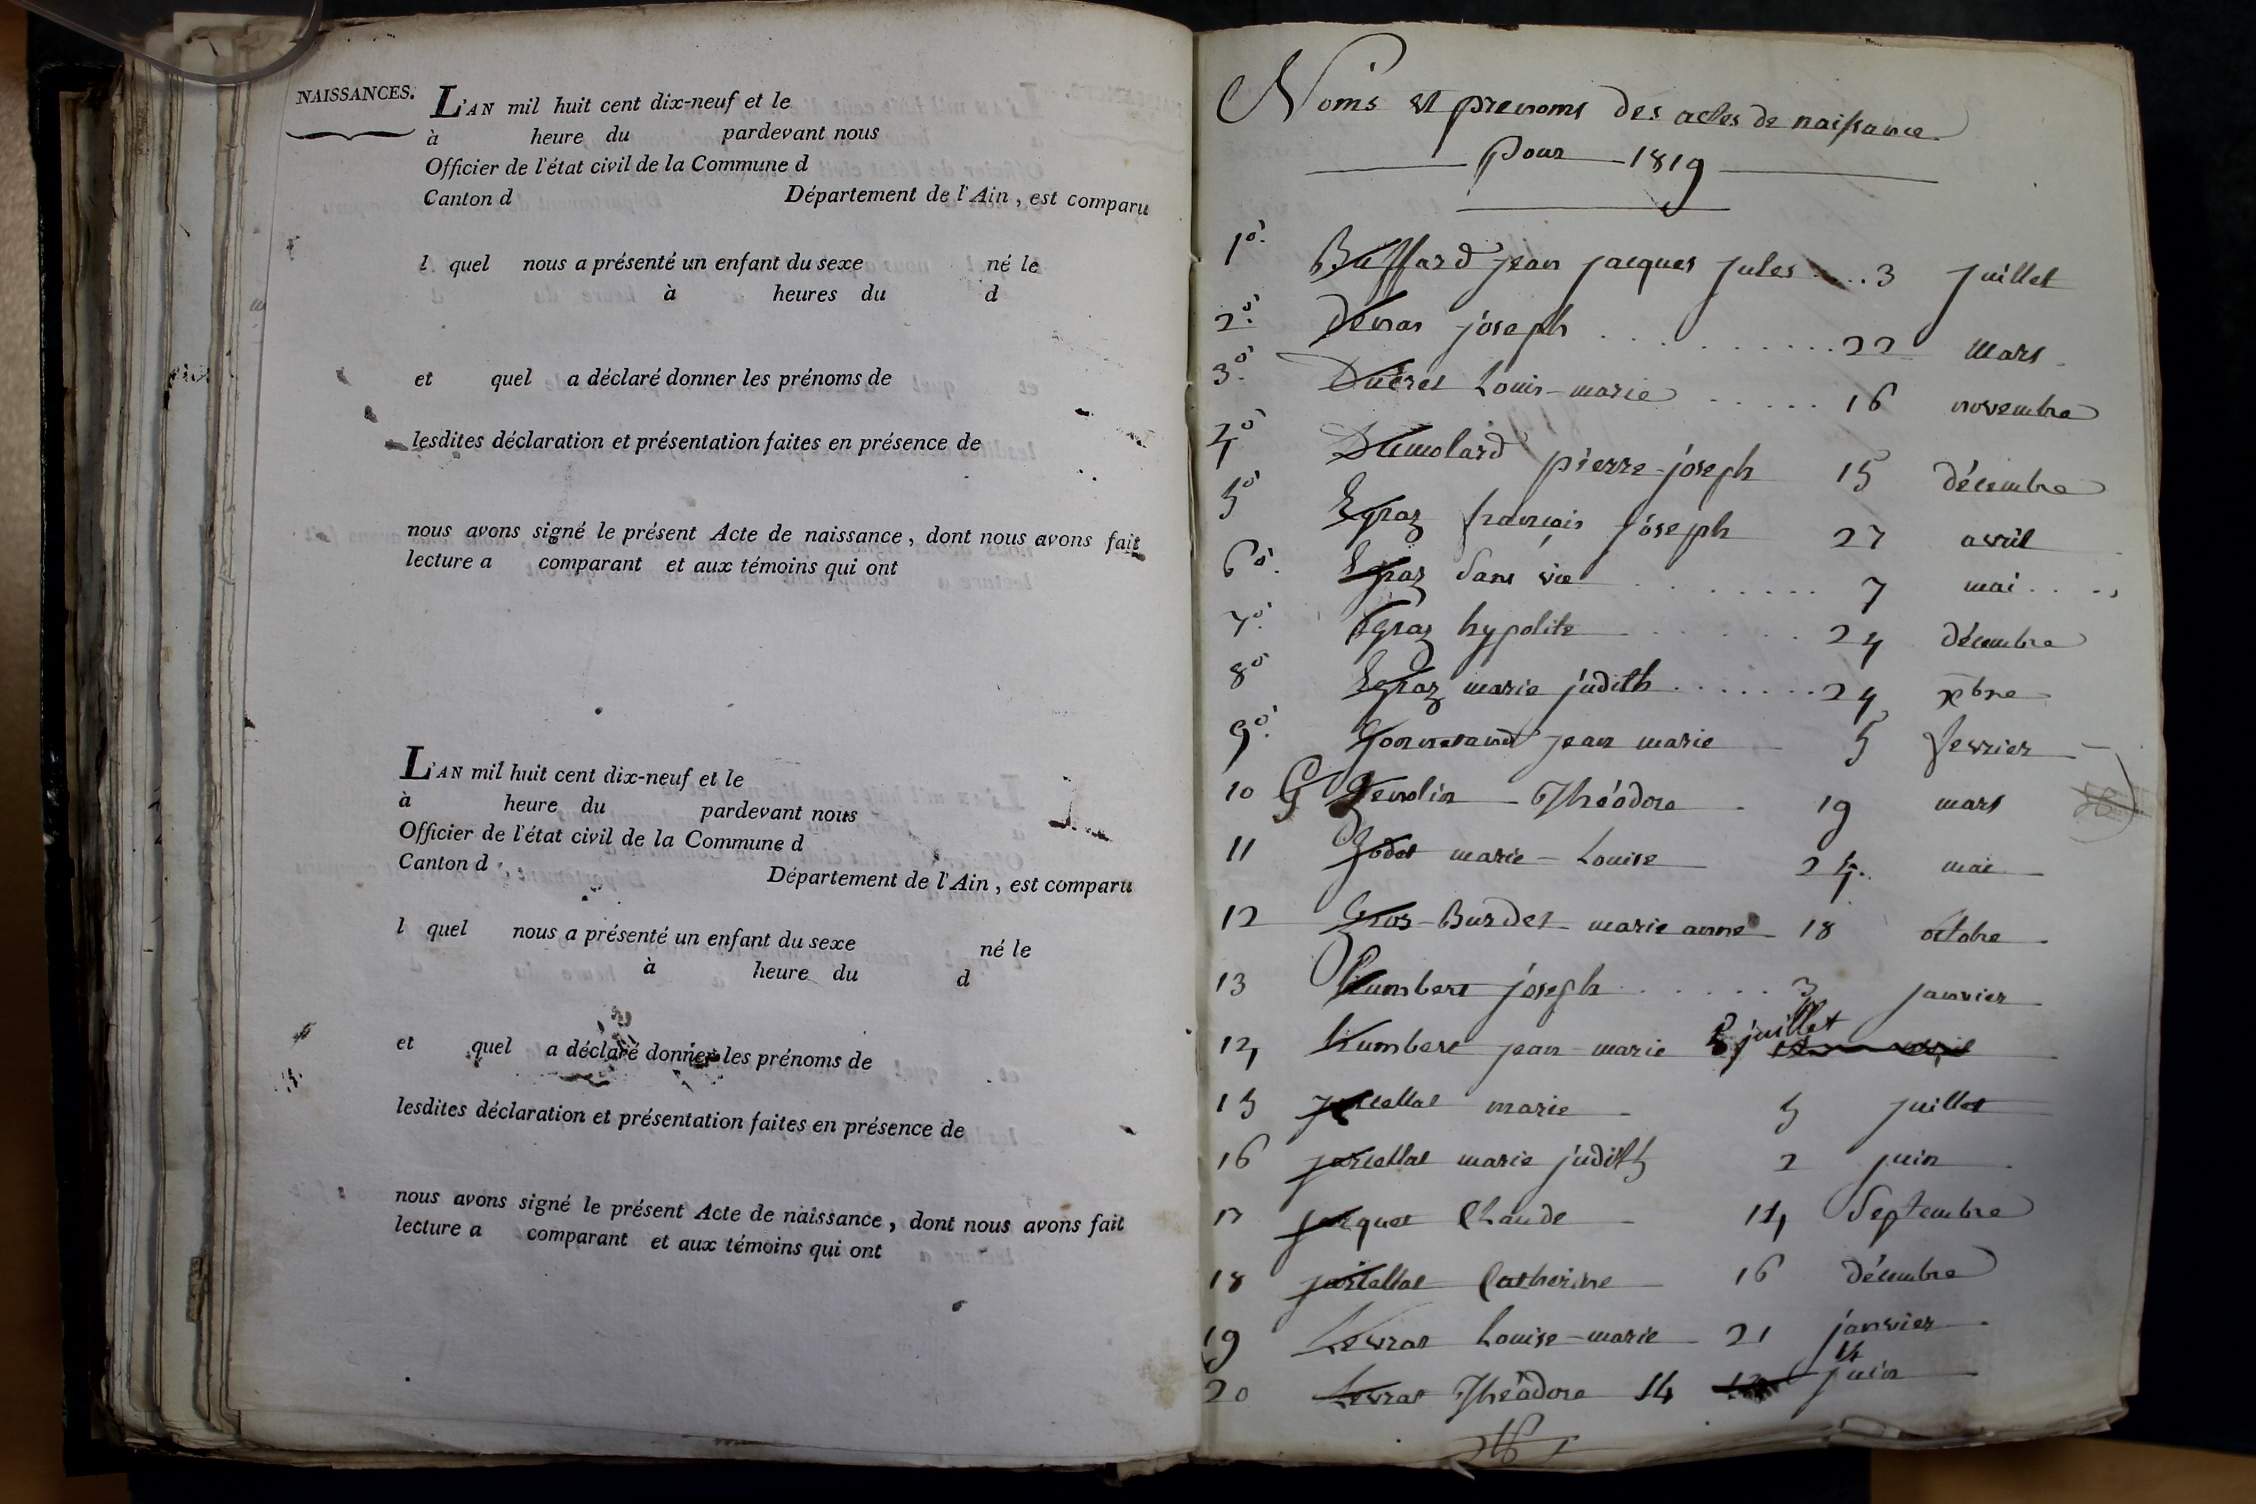 NAISSANCES.
L'AN mil huit cent dix-neuf et le
à heure du pardevant nous
Officier de l'état civil de la Commune d
Canton d Département de l'Ain, est comparu
l quel nous a présenté un enfant du sexe né le
à heures du d
et quel a déclaré donner les prénoms de
lesdites déclaration et présentation faites en présence de
nous avons signé le présent Acte de naissance, dont nous avons fait
lecture a comparant et aux témoins qui ont
L'AN mil huit cent dix-neuf et le
à heure du pardevant nous
Officier de l'état civil de la Commune d
Canton d Département de l'Ain, est comparu
l quel nous a présenté un enfant du sexe né le
à heure du d
et quel a déclaré donner les prénoms de
lesdites déclaration et présentation faites en présence de
nous avons signé le présent Acte de naissance, dont nous avons fait
lecture a comparant et aux témoins qui ont
Noms et prenoms des actes de naissance
pour 1819
1o. Buffard jean jacques jules .... 3 juillet
2o. Devras joseph .......... 22 mars
3o. Ducret Louis-marie ..... 16 novembre
4o Dumolard pierre-joseph 15 décembre
5o Egraz françois joseph 27 avril
6o. Egraz sans vie ....... 7 mai ....
7o. Egraz hypolite ...... 24 décembre
8o Egraz marie judith ....... 24 xbre
9o. Gonnerand jean marie - 5 fevrier
10 G Genolin - Théodore - 19 mars
11 Godet marie - Louise 24. mai
12 Gros-Burdet marie anne 18 octobre
13 humbert joseph ...... 3 janvier
14 humbert jean-marie 5 juillet
15 marie - 5 juillet
16 marie judith 2 juin
17 jacquet Claude - 14 Septembre
18 Catherine 16 décembre
19 Levrat Louise-marie 21 janvier
20 Levrat Théodore 14 14 juin